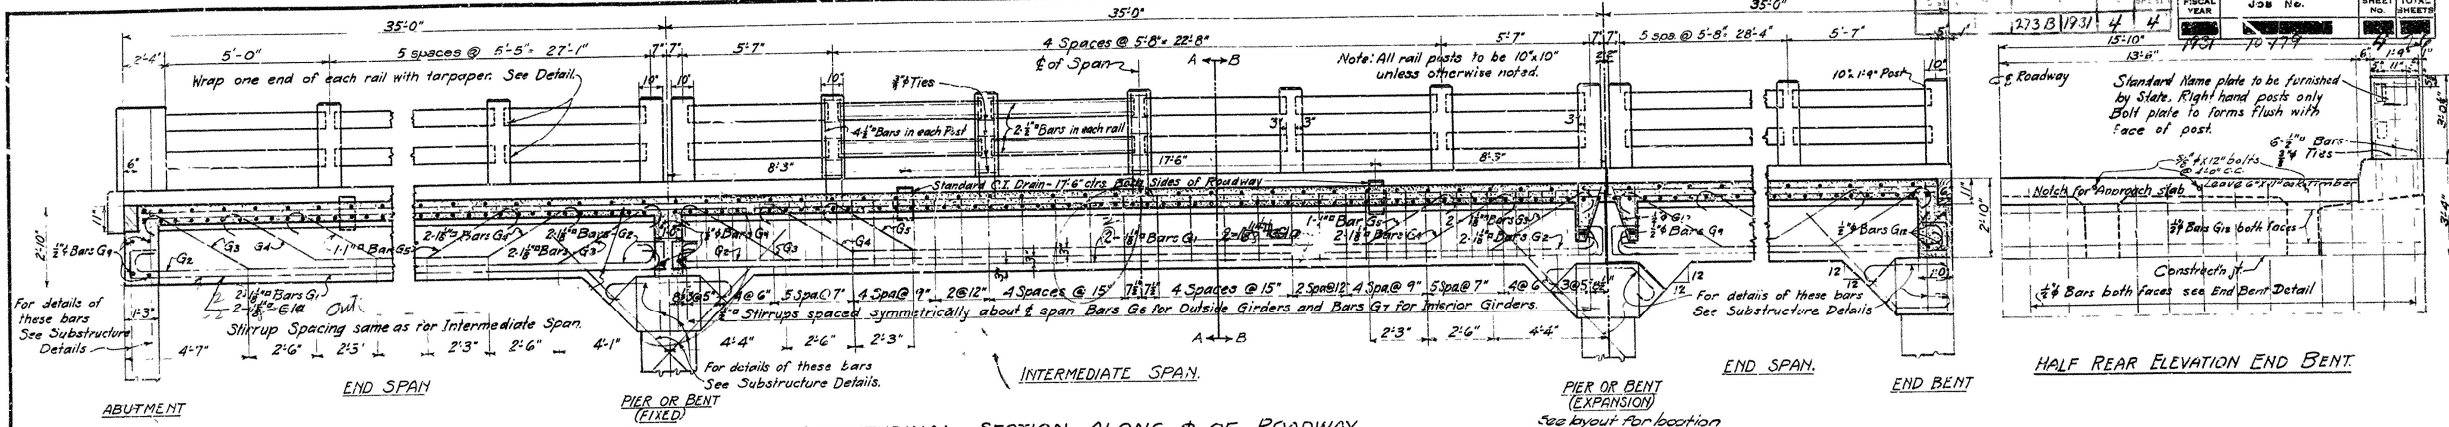 35'-0"
35'-0"
35'-0"
FISCAL YEAR
JOB No.
SHEET No.
TOTAL SHEETS
273 B 1931 4 4
2'-4"
5'-0"
5 spaces @ 5'-5" = 27'-1"
7" 7"
5'-7"
4 Spaces @ 5'-8" = 22'-8"
5'-7"
7" 7"
5 spa. @ 5'-8" = 28'-4"
5'-7"
15'-10"
13'-6"
Wrap one end of each rail with tarpaper. See Detail.
10"
10"
10"
¢ of Span
A B
Note: All rail posts to be 10"x10"
unless otherwise noted.
10"x1'-9" Post
10"
¢ Roadway
Standard Name plate to be furnished
by State. Right hand posts only
Bolt plate to forms flush with
face of post.
Ties
4-½"□ Bars in each Post
2-½"□ Bars in each rail
3" 3"
3"
6"
8'-3"
17'-6"
8'-3"
6-½"□ Bars
Ties
⅝"φx12" bolts
@ 1'-0" C.C.
Standard C.I. Drain-17'-6" ctrs Both Sides of Roadway
Notch for Approach slab
11"
2'-10"
½"φ Bars G9
G2
G3
G4
1-1"□ Bar G5
2-1⅛"□ Bars G4
2-1⅛"□ Bars G3
2-1⅛"□ Bars G2
½"φ Bars G9
G2
G3
G4
G5
2-1⅛"□ Bars G1
1-1"□ Bar G5
2-1⅛"□ Bars G4
2-1⅛"□ Bars G3
2-1⅛"□ Bars G2
½"φ Bars G9
½"φ Bars G12
11"
2'-10"
½"φ Bars G12 both faces
3'-4"
Construct'n jt.
½"φ Bars both faces see End Bent Detail
For details of
these bars
See Substructure
Details
1'-3"
2-1⅛"□ Bars G1
Out
Stirrup Spacing same as for Intermediate Span.
4@6"
5 Spa.@7"
4 Spa@9"
2@12"
4 Spaces @ 15"
7½" 7½"
4 Spaces @ 15"
2 Spa@12
4 Spa.@ 9"
5 Spa@7"
4@6
3@5"
12
12
12
12
1'-0"
Stirrups spaced symmetrically about ¢ span Bars G6 for Outside Girders and Bars G7 for Interior Girders.
For details of these bars
See Substructure Details
4'-7"
2'-6"
2'-3"
2'-3"
2'-6"
4'-1"
4'-4"
2'-6"
2'-3"
A B
2'-3"
2'-6"
4'-4"
For details of these bars
See Substructure Details.
ABUTMENT
END SPAN
PIER OR BENT
(FIXED)
INTERMEDIATE SPAN.
PIER OR BENT
(EXPANSION)
See layout for location
END SPAN.
END BENT
HALF REAR ELEVATION END BENT.
SECTION ALONG ¢ OF ROADWAY